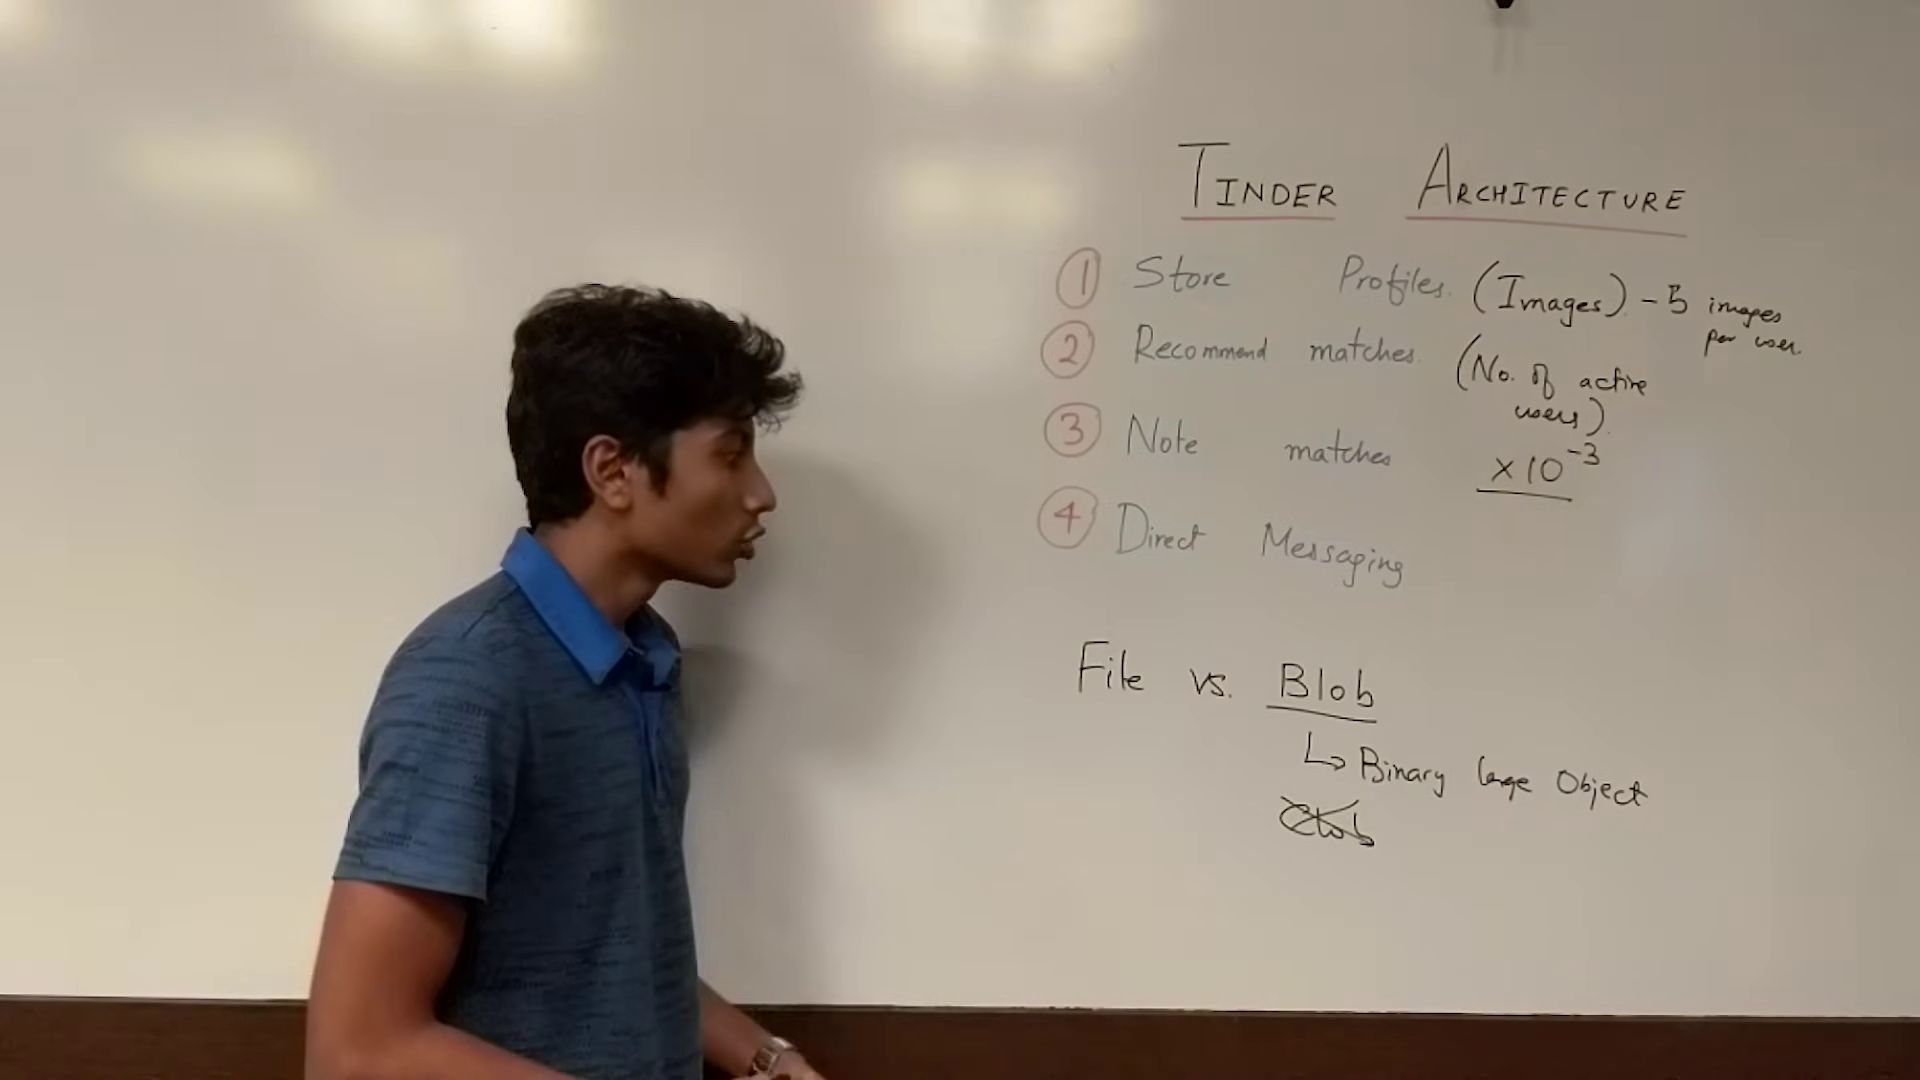 TINDER ARCHITECTURE
① Store Profiles. (Images) - 5 images per user.
② Recommend matches. (No. of active users)
③ Note matches × 10⁻³
④ Direct Messaging
File vs. Blob
↳ Binary large Object